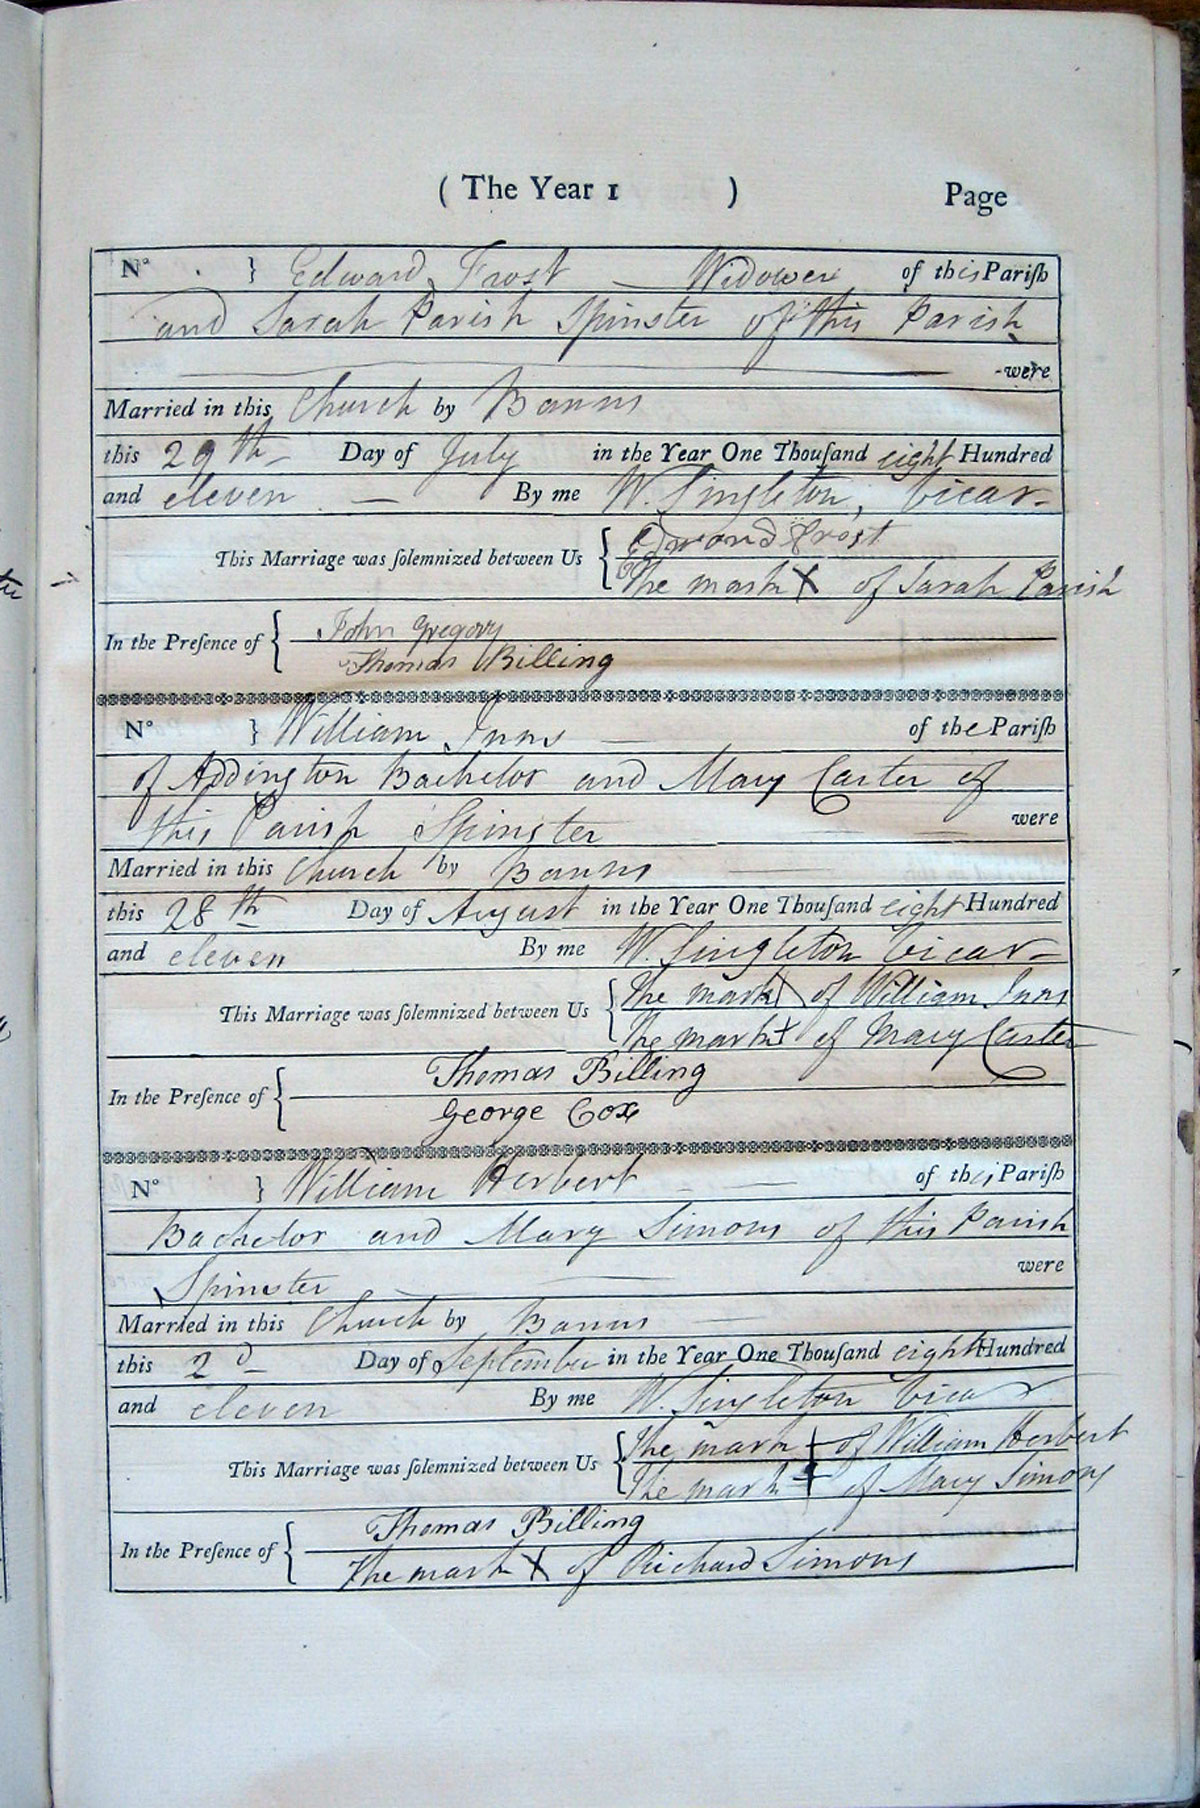 ( The Year 1 ) Page
No } Edward Frost Widower of this Pariſh
and Sarah Parish Spinster of this Parish
were
Married in this Church by Banns
this 29th Day of July in the Year One Thouſand eight Hundred
and eleven — By me W. Singleton, Vicar
This Marriage was ſolemnized between Us { Edward Frost
The mark X of Sarah Parish
In the Preſence of { John Gregory
Thomas Billing
No } William Inns — of the Pariſh
of Addington Bachelor and Mary Carter of
this Parish Spinster were
Married in this Church by Banns
this 28th Day of August in the Year One Thouſand eight Hundred
and eleven By me W. Singleton Vicar
This Marriage was ſolemnized between Us { The mark X of William Inns
The mark + of Mary Carter
In the Preſence of { Thomas Billing
George Cox
No } William Herbert of this Pariſh
Bachelor and Mary Simons of this Parish
Spinster were
Married in this Church by Banns
this 2d Day of September in the Year One Thouſand eight Hundred
and eleven By me W. Singleton Vicar
This Marriage was ſolemnized between Us { The mark + of William Herbert
The mark + of Mary Simons
In the Preſence of { Thomas Billing
The mark X of Richard Simons